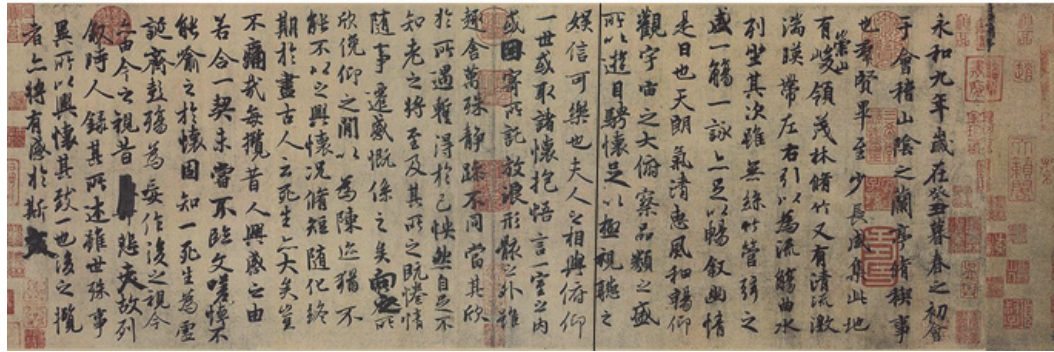 永和九年歲在癸丑暮春之初會
于會稽山陰之蘭亭脩稧事
也羣賢畢至少長咸集此地
有崇山峻領茂林脩竹又有清流激
湍暎帶左右引以為流觴曲水
列坐其次雖無絲竹管弦之
盛一觴一詠亦足以暢敘幽情
是日也天朗氣清惠風和暢仰
觀宇宙之大俯察品類之盛
所以遊目騁懷足以極視聽之
娛信可樂也夫人之相與俯仰
一世或取諸懷抱悟言一室之內
或因寄所託放浪形骸之外雖
趣舍萬殊靜躁不同當其欣
於所遇蹔得於己怏然自足不
知老之將至及其所之既惓情
隨事遷感慨係之矣向之所
欣俛仰之閒以為陳迹猶不
能不以之興懷況脩短隨化終
期於盡古人云死生亦大矣豈
不痛哉每攬昔人興感之由
若合一契未甞不臨文嗟悼不
能喻之於懷固知一死生為虛
誕齊彭殤為妄作後之視今
亦由今之視昔悲夫故列
敘時人錄其所述雖世殊事
異所以興懷其致一也後之攬
者亦將有感於斯文